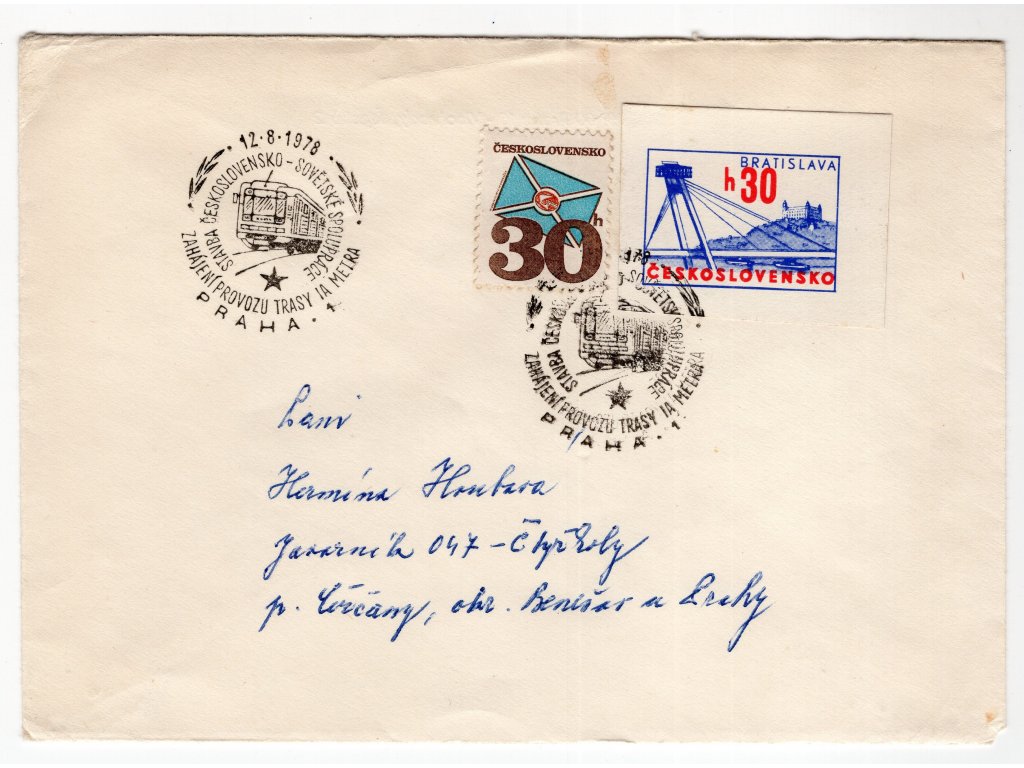 12·8·1978
STAVBA ČESKOSLOVENSKO-SOVĚTSKÉ SPOLUPRÁCE
ZAHÁJENÍ PROVOZU TRASY IA METRA
PRAHA·1
ČESKOSLOVENSKO
h
30
BRATISLAVA
h 30
ČESKOSLOVENSKO
178
STAVBA ČESKO -SOVĚTSK SPOLUPRÁCE
ZAHÁJENÍ PROVOZU TRASY IA METRA
PRAHA·1
Paní
Hermína Houbova
Javorník 047 - Čtyřkoly
p. Čerčany, okr. Benešov u Prahy